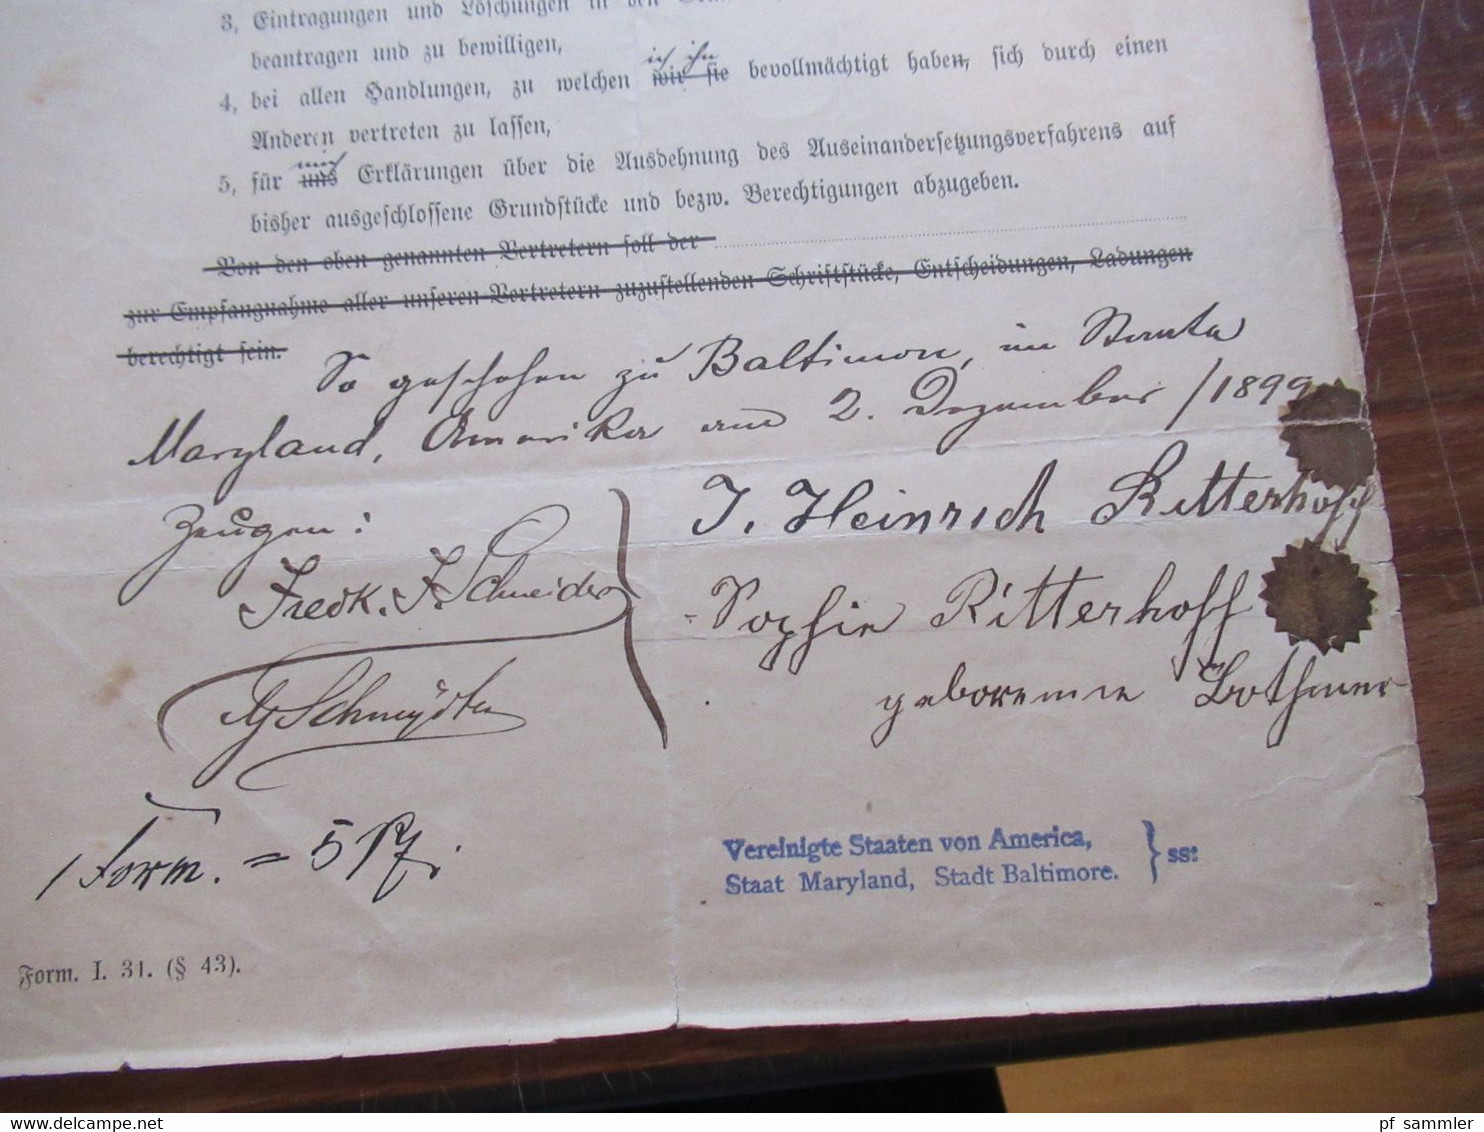 3, Eintragungen und Löschungen in den
beantragen und zu bewilligen,
ich ihn
4, bei allen Handlungen, zu welchen wir sie bevollmächtigt haben, sich durch einen
Anderen vertreten zu lassen,
mich
5, für uns Erklärungen über die Ausdehnung des Auseinandersetzungsverfahrens auf
bisher ausgeschlossene Grundstücke und bezw. Berechtigungen abzugeben.
Von den oben genannten Vertretern soll der
zur Empfangnahme aller unseren Vertretern zuzustellenden Schriftstücke, Entscheidungen, Ladungen
berechtigt sein.
So geschehen zu Baltimore, im Staate
Maryland, Amerika am 2. Dezember / 1899
Zeugen:
Fredk. F. Schneider
J. Heinrich Ritterhoff
Sophie Ritterhoff
geborenne Bothmer
/ Form. = 5 Pf.
Vereinigte Staaten von America,
Staat Maryland, Stadt Baltimore. } ss:
Form. I. 31. (§ 43).
pf_sammler